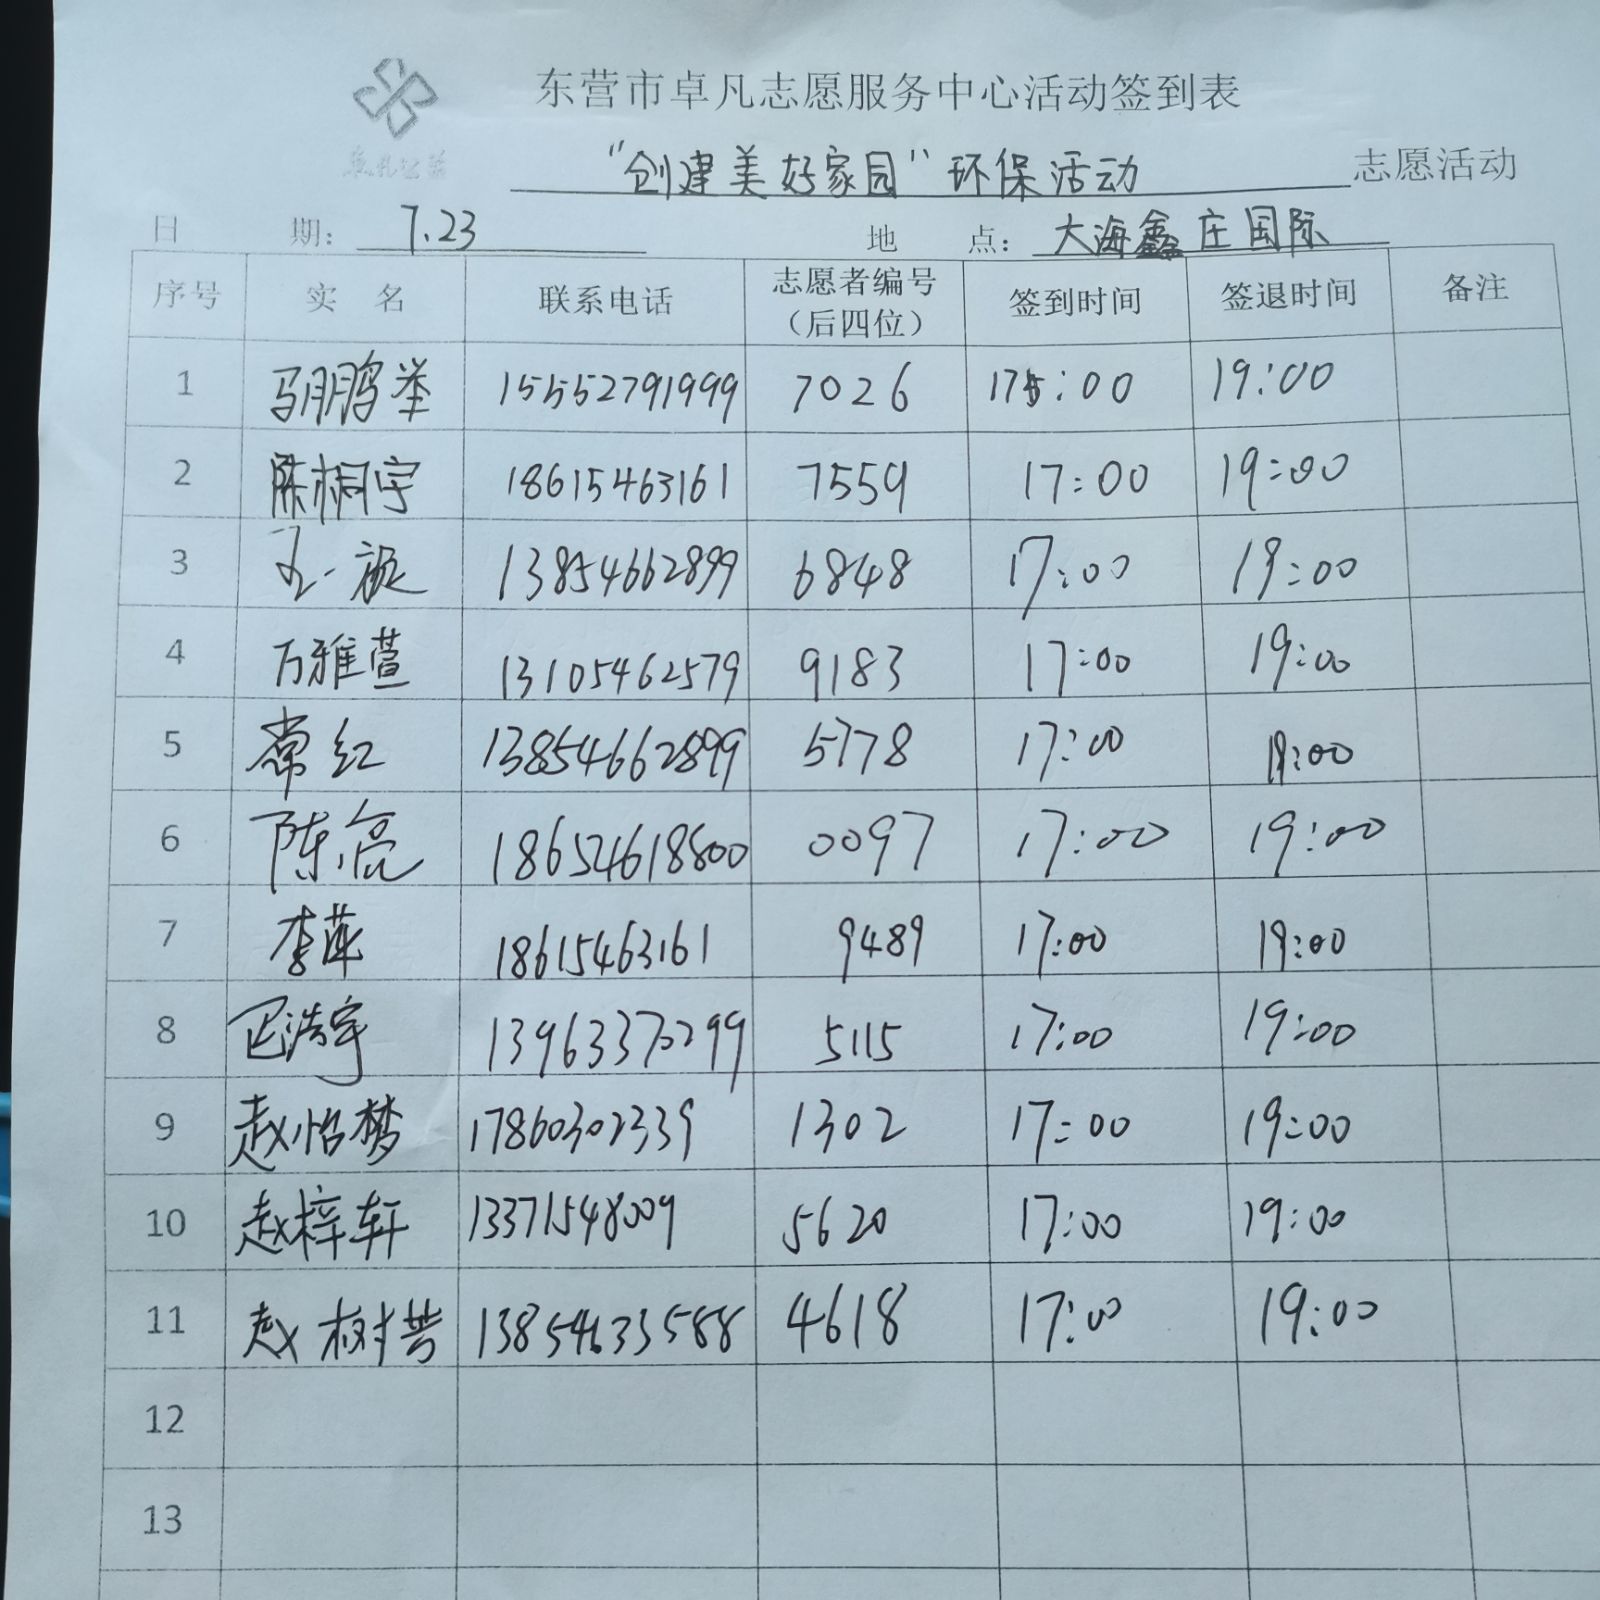 东营市卓凡志愿服务中心活动签到表
“创建美好家园”环保活动 志愿活动
日 期: 7.23 地 点: 大海鑫庄国际
序号 实 名 联系电话 志愿者编号(后四位) 签到时间 签退时间 备注
1 马鹏举 15552791999 7026 17:00 19:00
2 陈桐宇 18615463161 7559 17:00 19:00
3 13854662899 6848 17:00 19:00
4 万雅萱 13105462579 9183 17:00 19:00
5 常红 13854662899 5178 17:00 19:00
6 陈亮 186524618800 0097 17:00 19:00
7 李萍 18615463161 9489 17:00 19:00
8 巴浩宇 13963370299 5115 17:00 19:00
9 赵怡梦 17860302339 1302 17:00 19:00
10 赵梓轩 13371548009 5620 17:00 19:00
11 赵树 13854633588 4618 17:00 19:00
12
13